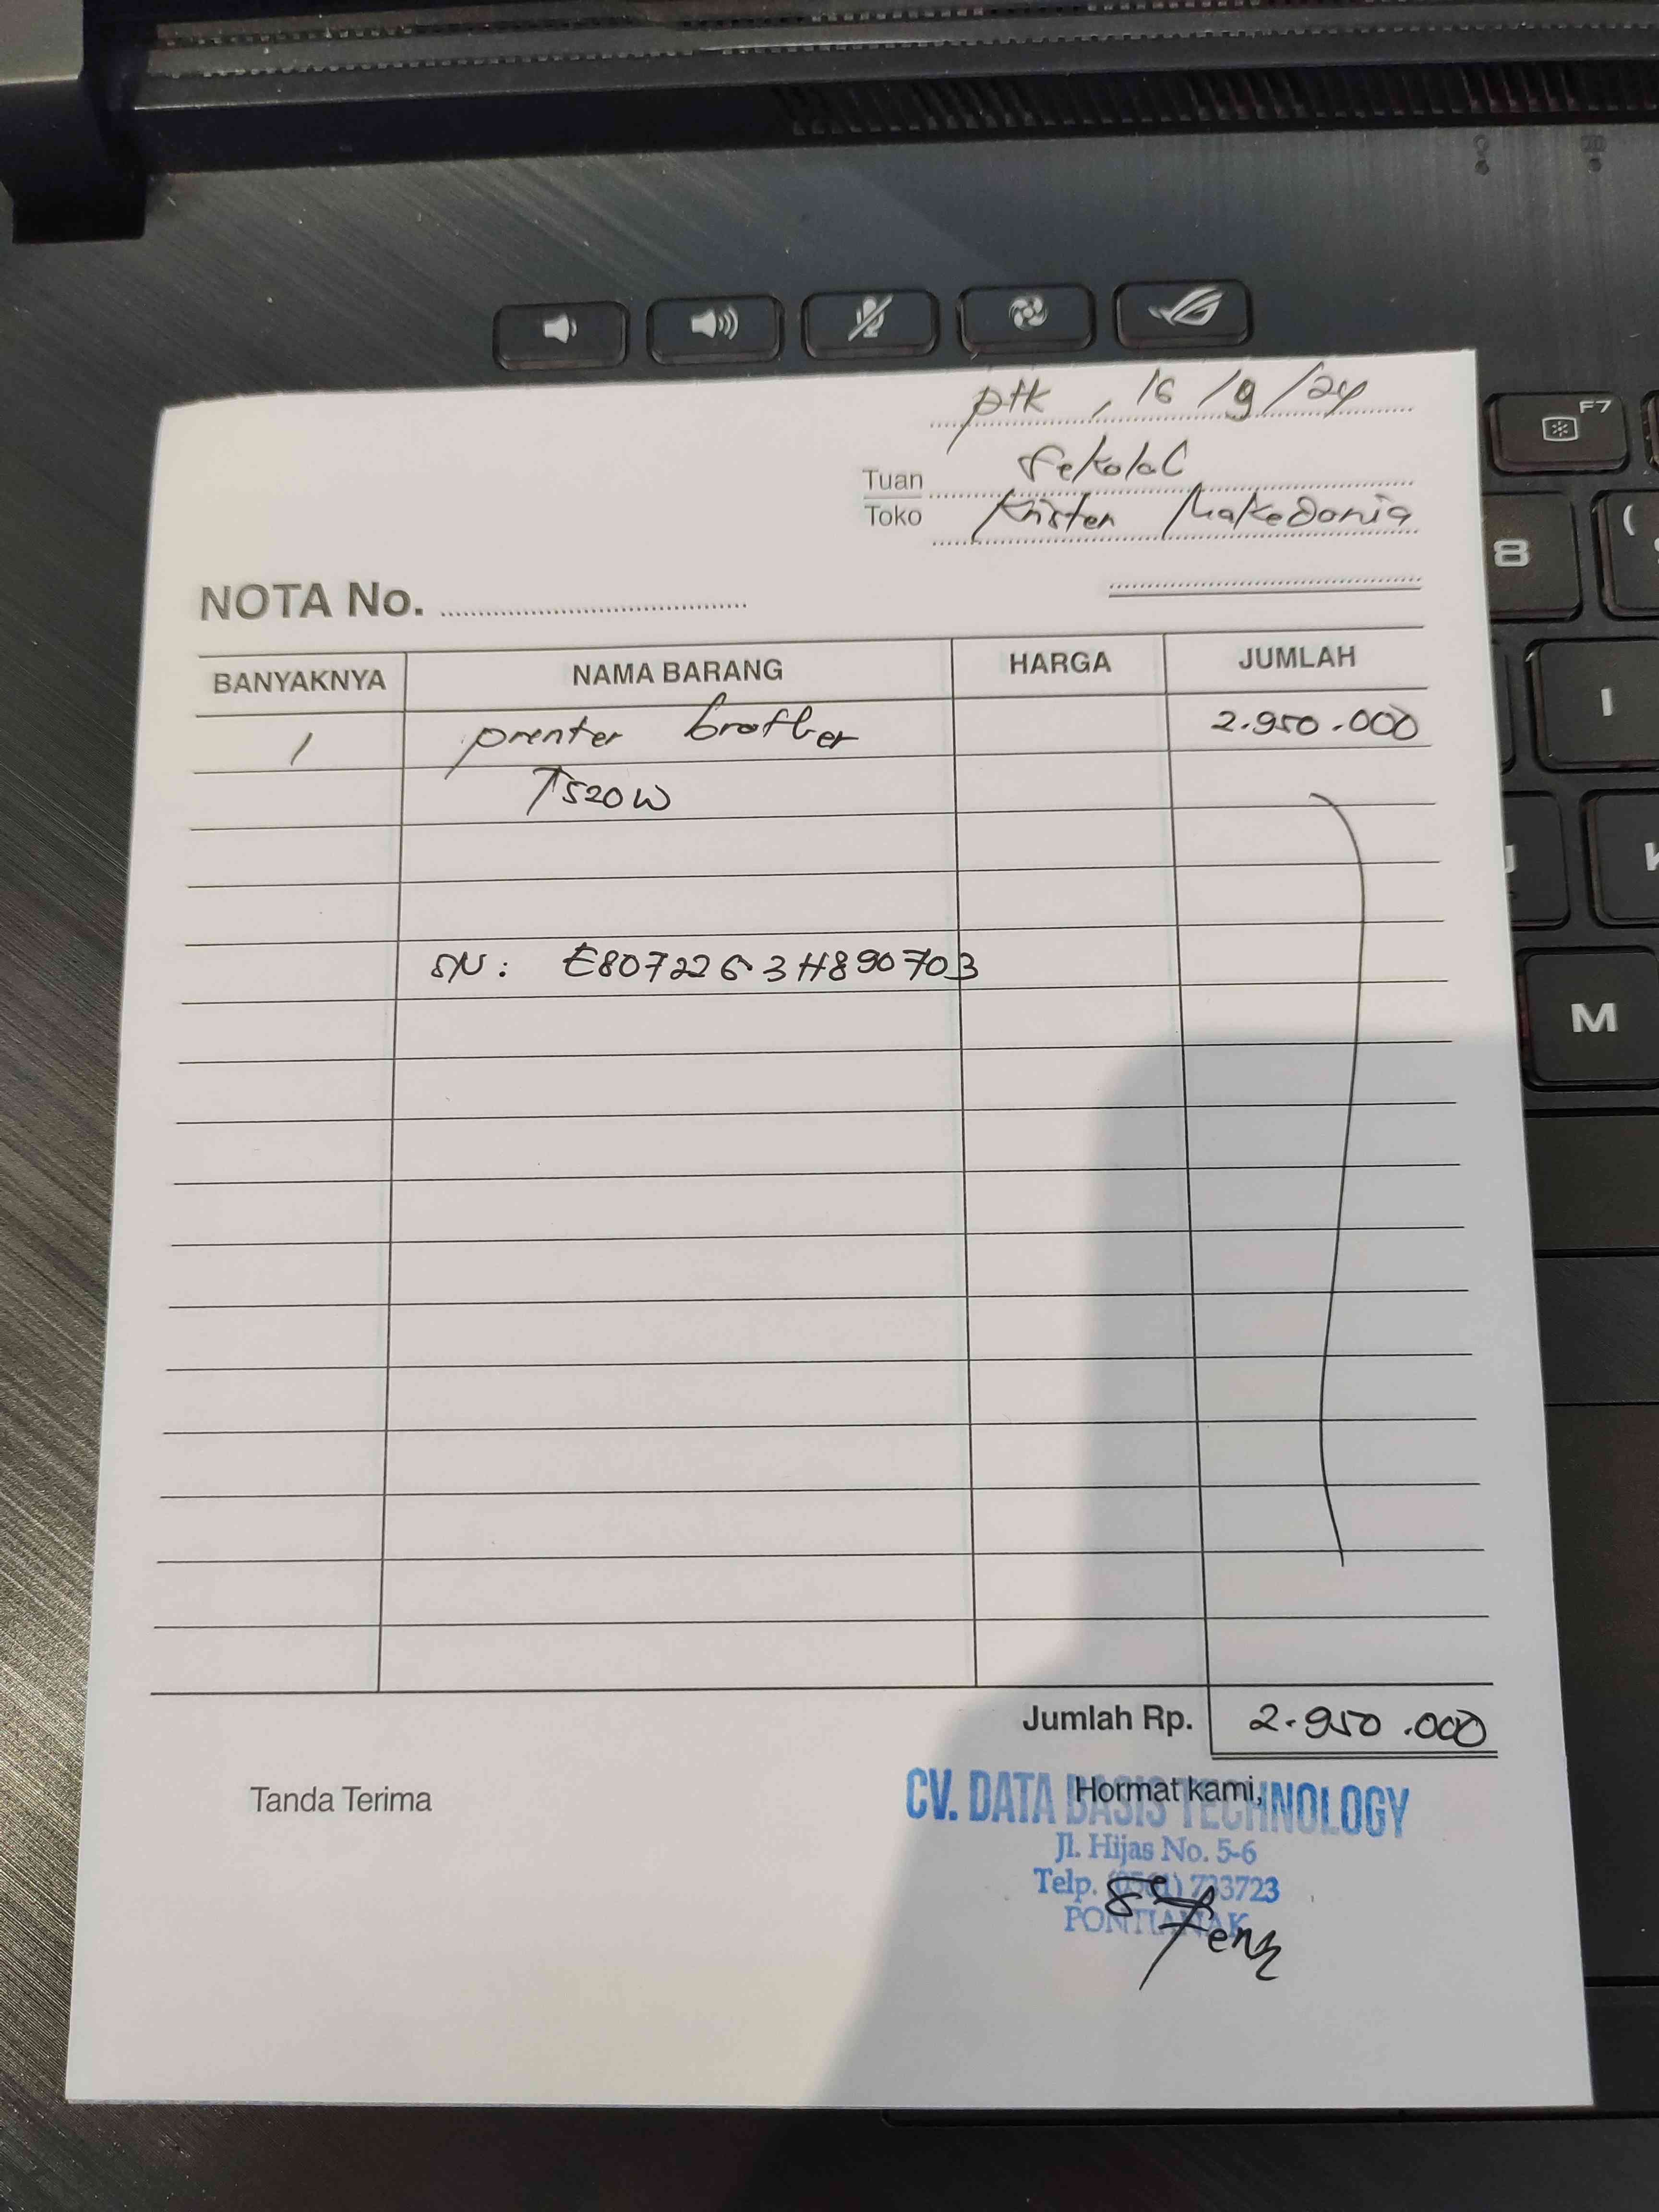 ptk, 16/9/24
Tuan Sekolah
Toko Kristen Makedonia
NOTA No.
BANYAKNYA NAMA BARANG HARGA JUMLAH
1 prenter brother 2.950.000
T520W
SN: E8072263H890703
Jumlah Rp. 2.950.000
Tanda Terima Hormat kami,
CV. DATA BASIS TECHNOLOGY
Jl. Hijas No. 5-6
Telp. (0561) 733723
PONTIANAK
F7
8
(
I
M